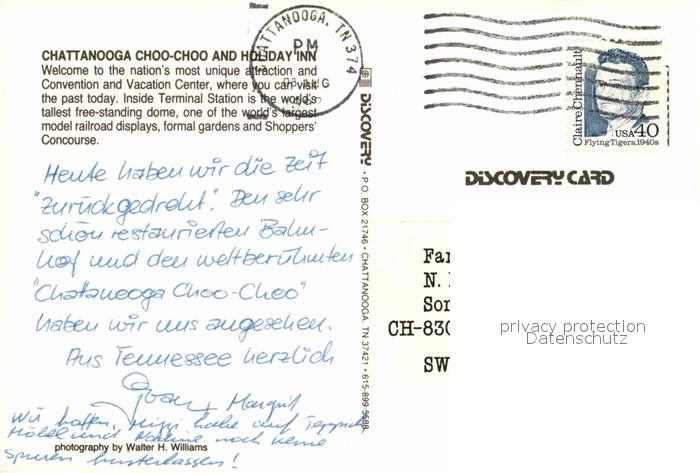 CHATTANOOGA CHOO-CHOO AND HOLIDAY INN
Welcome to the nation's most unique attraction and
Convention and Vacation Center, where you can visit
the past today. Inside Terminal Station is the world's
tallest free-standing dome, one of the world's largest
model railroad displays, formal gardens and Shoppers'
Concourse.
CHATTANOOGA, TN 374
PM
08 AUG
Claire Chennault
USA 40
Flying Tigers, 1940s
DISCOVERY CARD
DISCOVERY • P.O. BOX 21746 • CHATTANOOGA, TN 37421 • 615-899-5688
Heute haben wir die Zeit
"zurückgedreht". Den sehr
schön restaurierten Bahn-
hof und den weltberühmten
"Chattanooga Choo-Choo"
haben wir uns angesehen.
Aus Tennessee herzlich
Margrit
Wir hoffen, habe auf
Möbel und noch keine
Spuren hinterlassen!
photography by Walter H. Williams
Fam
N.
Son
CH-830
SW
privacy protection
Datenschutz